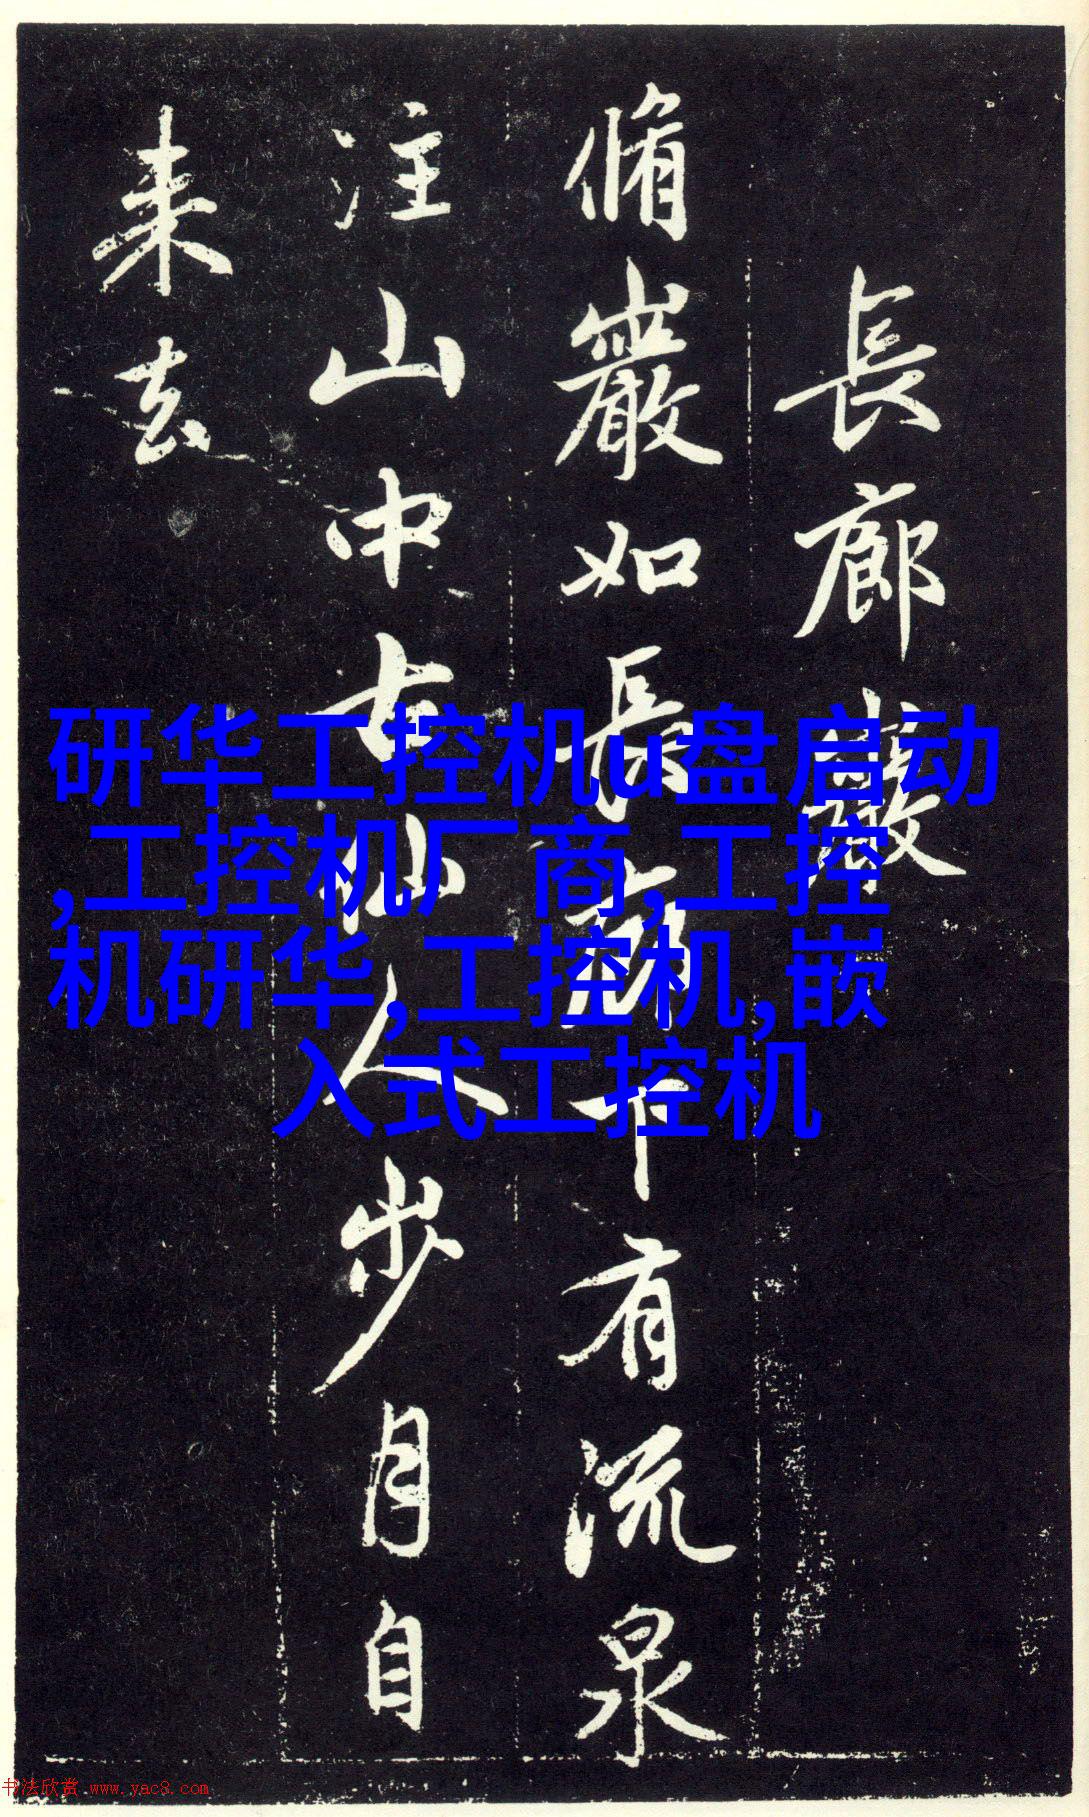 長廊巖
脩巖如長廊下有流泉
注山中古仙人步月自
来去
研华工控机u盘启动
,工控机厂商,工控
机研华,工控机,嵌
入式工控机
书法欣赏 www.yac8.com